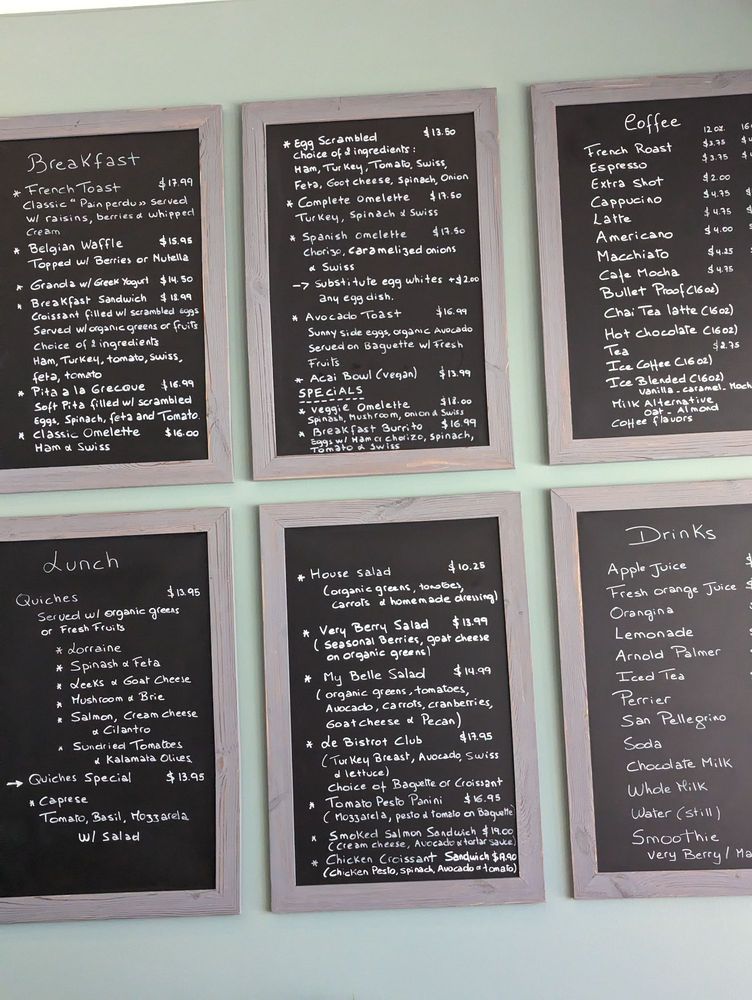 Breakfast
* French Toast $17.99
Classic "Pain perdu" served
w/ raisins, berries & whipped
Cream
* Belgian Waffle $15.95
Topped w/ Berries or Nutella
* Granola w/ Greek Yogurt $14.50
* Breakfast Sandwich $18.99
Croissant filled w/ scrambled eggs
Served w/ organic greens or fruits
Choice of 2 ingredients
Ham, Turkey, tomato, swiss,
feta, tomato
* Pita a la Grecque $16.99
Soft Pita filled w/ scrambled
Eggs, Spinach, feta and Tomato.
* Classic Omelette $16.00
Ham & Swiss
* Egg Scrambled $13.50
choice of 2 ingredients:
Ham, Turkey, Tomato, Swiss,
Feta, Goat cheese, Spinach, Onion
* Complete omelette $17.50
Turkey, Spinach & Swiss
* Spanish omelette $17.50
Chorizo, caramelized onions
& Swiss
-> Substitute egg whites +$2.00
any egg dish.
* Avocado Toast $16.99
Sunny side eggs, organic Avocado
Served on Baguette w/ Fresh
Fruits
* Acai Bowl (vegan) $13.99
SPECIALS
* Veggie Omelette $18.00
Spinach, Mushroom, onion & Swiss
* Breakfast Burrito $16.99
Eggs w/ Ham or chorizo, spinach,
Tomato & Swiss
Coffee
12 oz.
French Roast $3.75
Espresso $3.75
Extra shot $2.00
Cappucino $4.75
Latte $4.75
Americano $4.00
Macchiato $4.25
Cafe Mocha $4.75
Bullet Proof (16oz)
Chai Tea latte (16oz)
Hot chocolate (16oz)
Tea $2.75
Ice Coffee (16oz)
Ice Blended (16oz)
vanilla - caramel - Moch
Milk Alternative
Oat - Almond
Coffee flavors
Lunch
Quiches $13.95
Served w/ organic greens
or Fresh Fruits
* Lorraine
* Spinash & Feta
* Leeks & Goat Cheese
* Mushroom & Brie
* Salmon, Cream cheese
& Cilantro
* Sundried Tomatoes
& Kalamata Olives
→ Quiches Special $13.95
* Caprese
Tomato, Basil, Mozzarela
w/ Salad
* House salad $10.25
(organic greens, tomatoes,
carrots & homemade dressing)
* Very Berry Salad $13.99
(Seasonal Berries, goat cheese
on organic greens)
* My Belle Salad $14.99
(organic greens, tomatoes,
Avocado, Carrots, cranberries,
Goat cheese & Pecan)
* Le Bistrot Club $17.95
(Turkey Breast, Avocado, Swiss
& lettuce)
Choice of Baguette or Croissant
* Tomato Pesto Panini $16.95
(Mozzarela, pesto & tomato on Baguette)
* Smoked Salmon Sandwich $19.00
(cream cheese, Avocado & tartar sauce)
* Chicken Croissant Sandwich $19.90
(Chicken Pesto, spinach, Avocado & tomato)
Drinks
Apple Juice
Fresh orange Juice
Orangina
Lemonade
Arnold Palmer
Iced Tea
Perrier
San Pellegrino
Soda
Chocolate Milk
Whole Milk
Water (still)
Smoothie
very Berry / Ma